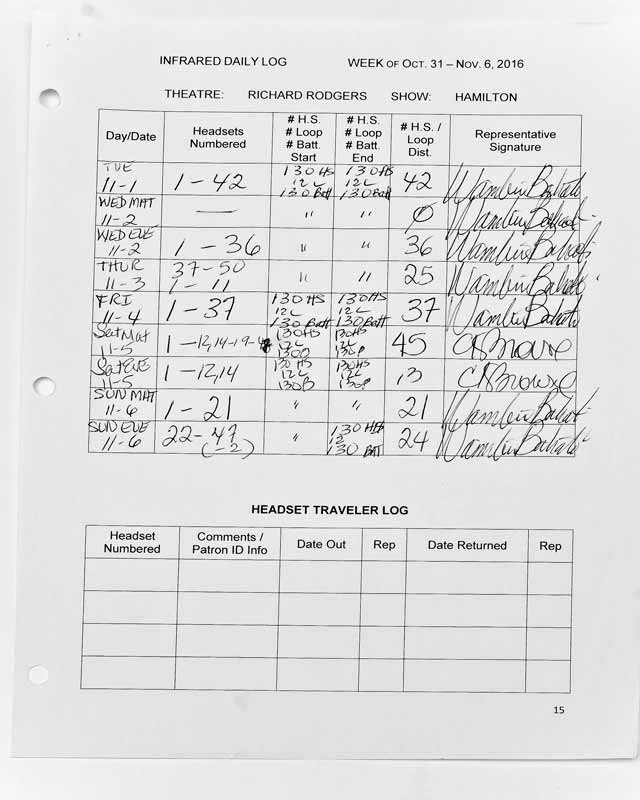 INFRARED DAILY LOG WEEK OF OCT. 31 – NOV. 6, 2016
THEATRE: RICHARD RODGERS SHOW: HAMILTON
Day/Date
Headsets
Numbered
# H.S.
# Loop
# Batt.
Start
# H.S.
# Loop
# Batt.
End
# H.S. /
Loop
Dist.
Representative
Signature
TUE
11-1
1 - 42
130 HS
12 L
130 Batt
130 HS
12 L
130 Batt
42
WED MAT
11-2
—
"
"
Ø
WED EVE
11-2
1 - 36
"
"
36
THUR
11-3
37-50
1 - 11
"
"
25
FRI
11-4
1 - 37
130 HS
12 L
130 Batt
130 HS
12 L
130 Batt
37
Sat Mat
11-5
1 -12,14-19-
130HS
12L
130HS
12L
130B
45
Sat EVE
11-5
1 -12,14
130 HS
12 L
130B
130HS
12L
130B
13
SUN MAT
11-6
1 - 21
"
"
21
SUN EVE
11-6
22-47
(-2)
"
130 HS
12
130 BATT
24
HEADSET TRAVELER LOG
Headset
Numbered
Comments /
Patron ID Info
Date Out
Rep
Date Returned
Rep
15